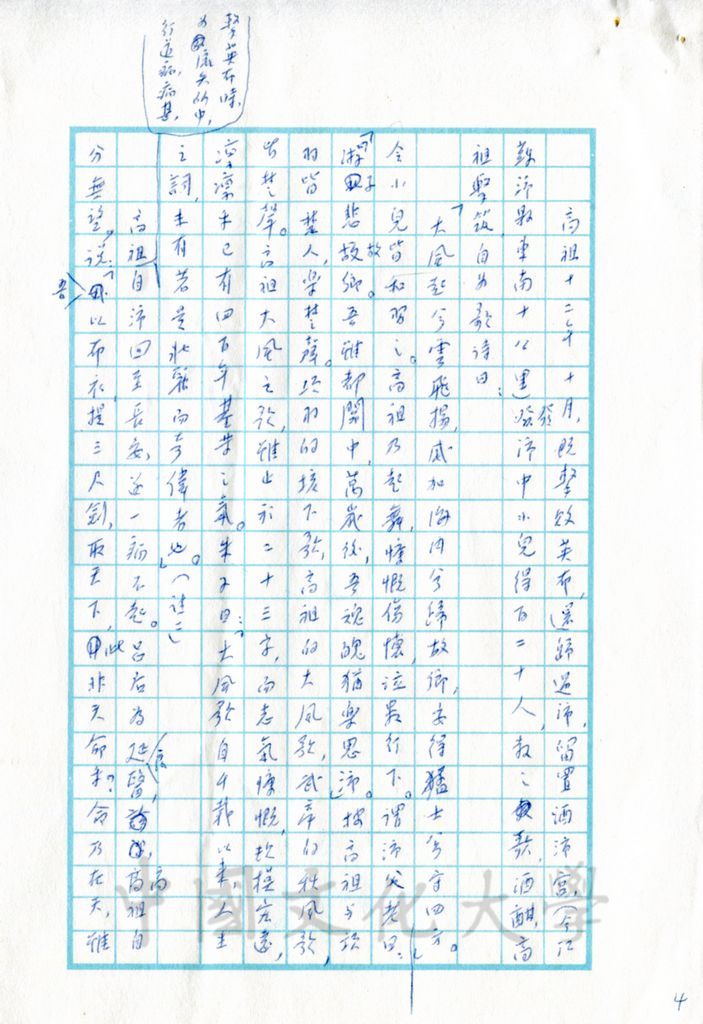 高祖十二年十月，既擊敗英布，還歸過沛，留置酒沛宮，（今江
蘇沛縣東南十八里）發沛中小兒得百二十人，教之歌，酒酣，高
祖擊筑，自為歌詩曰：
「大風起兮雲飛揚，威加海內兮歸故鄉，安得猛士兮守四方。」
令小兒皆和習之。高祖乃起舞，慷慨傷懷，泣數行下。謂沛父老曰：
「游子悲故鄉。吾雖都關中，萬歲後，吾魂魄猶樂思沛。」按高祖與項
羽皆楚人，樂楚聲。項羽的垓下歌，高祖的大風歌，武帝的秋風歌，
皆楚聲。高祖大風之歌，雖止於二十三字，而志氣慷慨，規模宏遠，
凜凜乎已有四百年基業之氣。朱子曰：「大風歌自千載以來，人主
之詞，未有若是壯麗而奇偉者也。」（註二）
高祖自沛回至長安，遂一病不起。呂后為延良醫，高祖自
分無望，說：「吾以布衣提三尺劍，取天下，此非天命乎？命乃在天，雖
擊英布時，
為流矢所中，
行道病，病甚，
中國文化大學
4